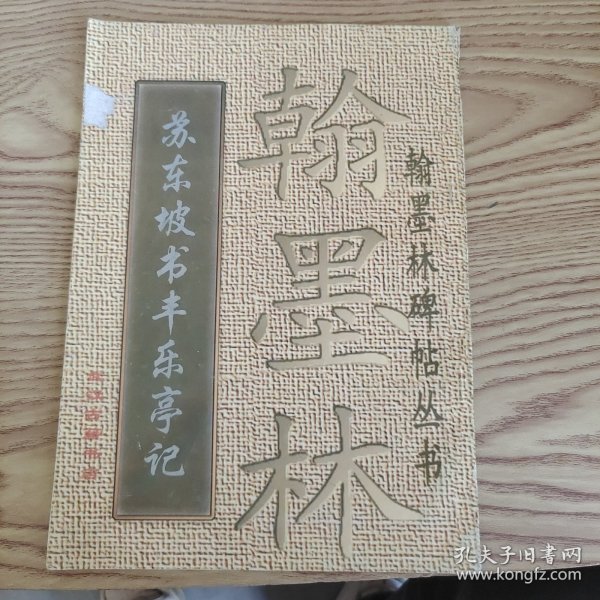 翰墨林碑帖丛书
翰墨林
苏东坡书丰乐亭记
孔夫子旧书网
www.kongfz.com